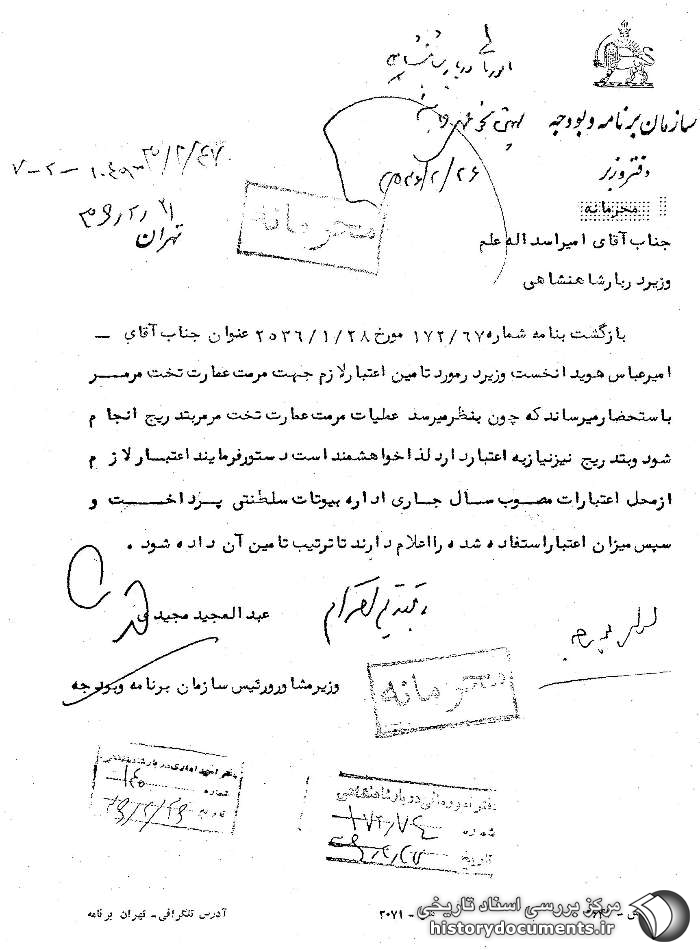 سازمان برنامه و بودجه
دفتر وزیر
محرمانه
۲۵۳۶/۲/۲۶
تهران
محرمانه
جناب آقای امیراسداله علم
وزیر دربار شاهنشاهی
بازگشت بنامه شماره ۱۷۲/۶۷ مورخ ۲۵۳۶/۱/۲۸ عنوان جناب آقای –
امیرعباس هویدا نخست وزیر درمورد تامین اعتبار لازم جهت مرمت عمارت تخت مرمر
باستحضار میرساند که چون بنظر میرسد عملیات مرمت عمارت تخت مرمر بتدریج انجام
شود و بتدریج نیز نیاز به اعتبار دارد لذا خواهشمند است دستور فرمایند اعتبار لازم
از محل اعتبارات مصوب سال جاری اداره بیوتات سلطنتی پرداخت و
سپس میزان اعتبار استفاده شده را اعلام دارند تا ترتیب تامین آن داده شود .
با تقدیم احترام
عبدالمجید مجیدی
وزیر مشاور و رئیس سازمان برنامه و بودجه
محرمانه
شماره
تاریخ
دفتر امور مالی دربار شاهنشاهی
شماره
تاریخ
آدرس تلگرافی – تهران برنامه
۳۰۷۱ –
مرکز بررسی اسناد تاریخی
historydocuments.ir